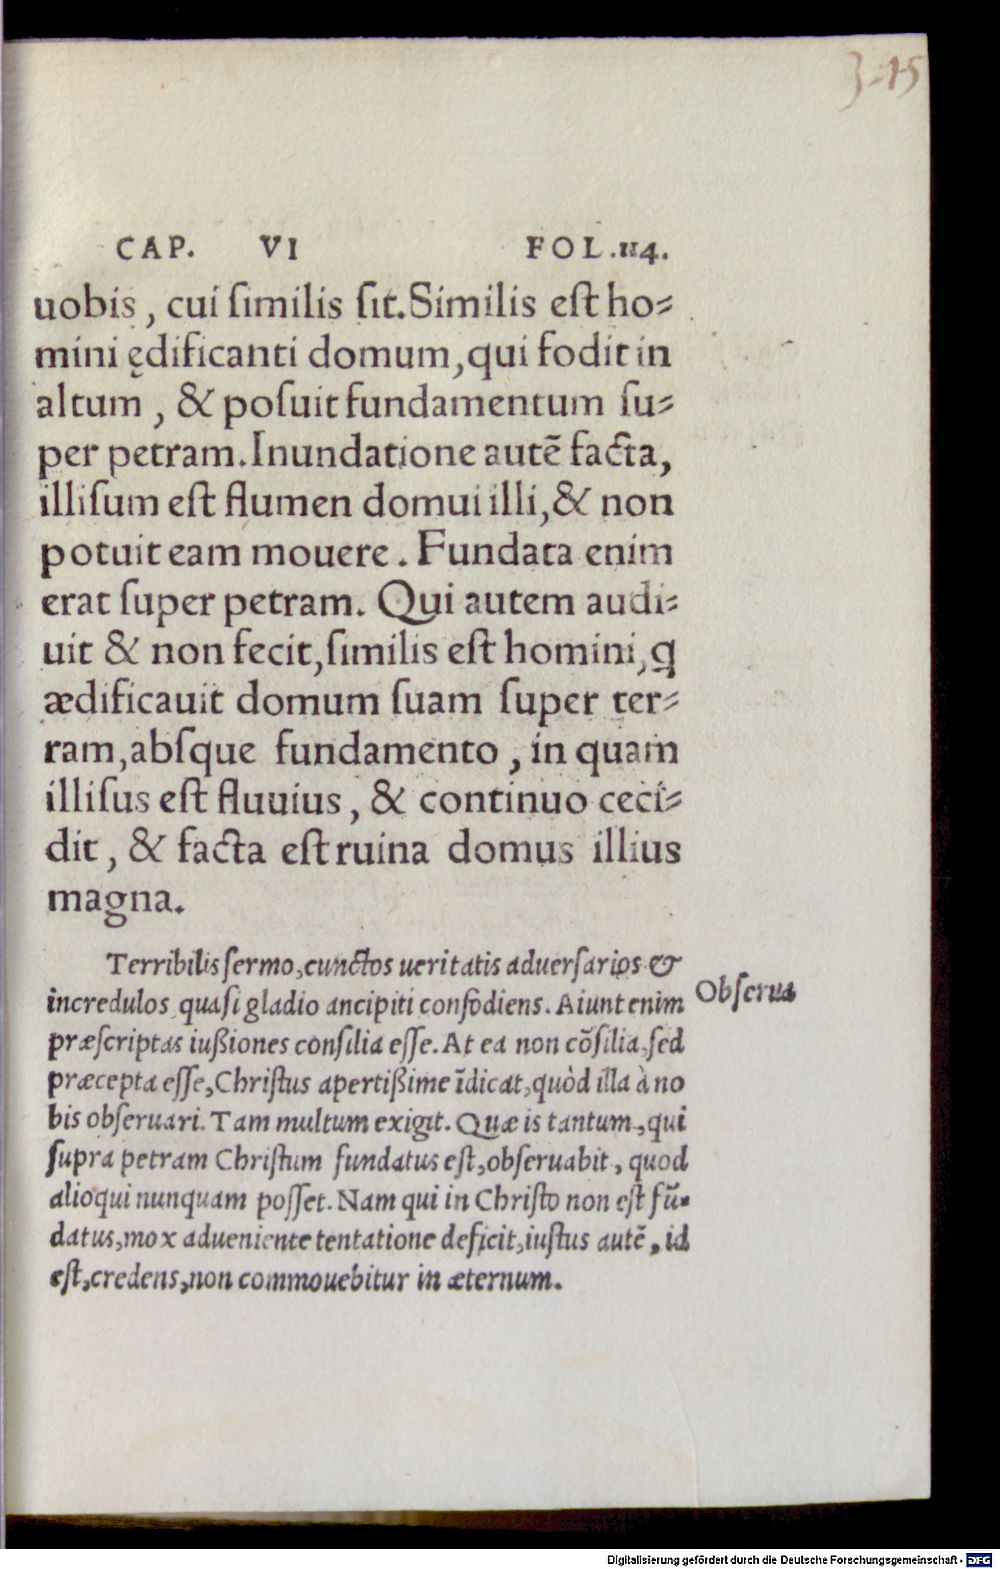 3-15
CAP. VI FOL.114.
uobis, cui ſimilis ſit. Similis eſt ho⸗
mini ędificanti domum, qui fodit in
altum, & poſuit fundamentum ſu⸗
per petram. Inundatione autē facta,
illiſum eſt flumen domui illi, & non
potuit eam mouere. Fundata enim
erat ſuper petram. Qui autem audi⸗
uit & non fecit, ſimilis eſt homini, q
ædificauit domum ſuam ſuper ter⸗
ram, abſque fundamento, in quam
illiſus eſt fluuius, & continuo ceci⸗
dit, & facta eſt ruina domus illius
magna.
Terribilis ſermo, cunctos ueritatis aduerſarios &
incredulos quaſi gladio ancipiti confodiens. Aiunt enim
Obſerua
præſcriptas iußiones conſilia eſſe. At ea non cõſilia, ſed
præcepta eſſe, Chriſtus apertißime īdicat, quòd illa à no
bis obſeruari. Tam multum exigit. Quæ is tantum, qui
ſupra petram Chriſtum fundatus eſt, obſeruabit, quod
alioqui nunquam poſſet. Nam qui in Chriſto non eſt fū⸗
datus, mox adueniente tentatione deficit, iuſtus autē, id
eſt, credens, non commouebitur in æternum.
Digitalisierung gefördert durch die Deutsche Forschungsgemeinschaft - DFG